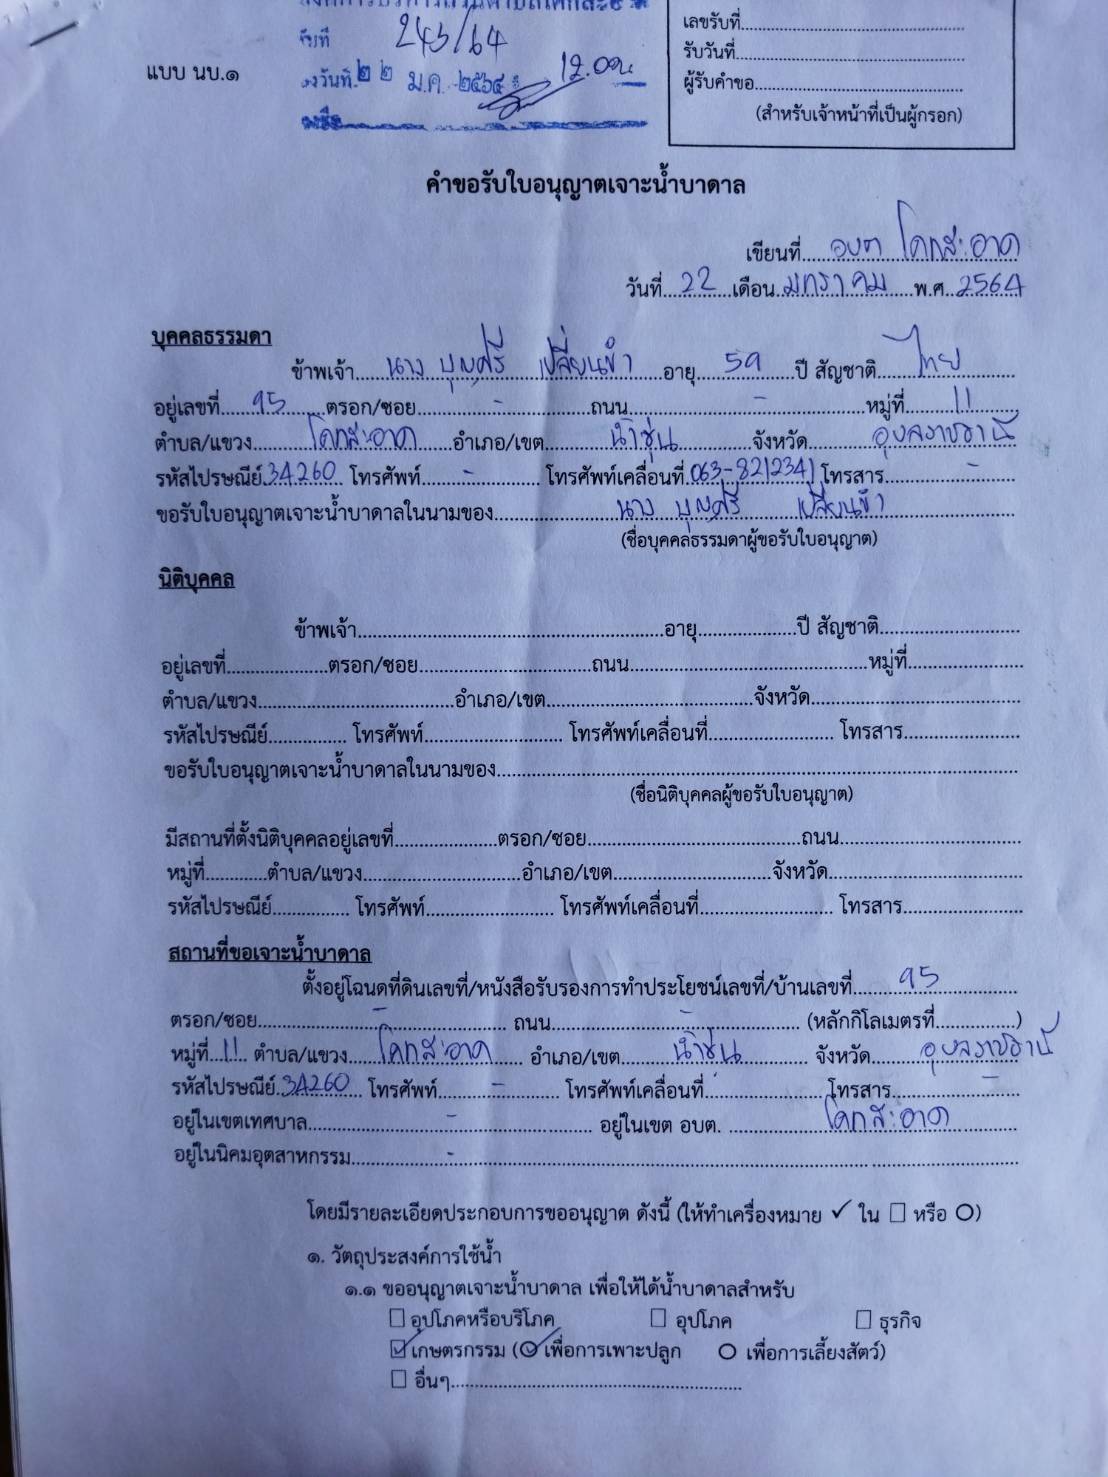 องค์การบริหารส่วนตำบลโคกสะอาด
รับที่ 243/64
ลงวันที่ ๒๒ ม.ค. ๒๕๖๔ 12.00น
แบบ นบ.๑
เลขรับที่
รับวันที่
ผู้รับคำขอ
(สำหรับเจ้าหน้าที่เป็นผู้กรอก)
คำขอรับใบอนุญาตเจาะน้ำบาดาล
เขียนที่ อบต โคกสะอาด
วันที่ 22 เดือน มกราคม พ.ศ. 2564
บุคคลธรรมดา
ข้าพเจ้า นาง บุญศรี เปลี่ยนขำ อายุ 59 ปี สัญชาติ ไทย
อยู่เลขที่ 95 ตรอก/ซอย - ถนน - หมู่ที่ 11
ตำบล/แขวง โคกสะอาด อำเภอ/เขต น้ำขุ่น จังหวัด อุบลราชธานี
รหัสไปรษณีย์ 34260 โทรศัพท์ - โทรศัพท์เคลื่อนที่ 063-8212341 โทรสาร -
ขอรับใบอนุญาตเจาะน้ำบาดาลในนามของ นาง บุญศรี เปลี่ยนขำ
(ชื่อบุคคลธรรมดาผู้ขอรับใบอนุญาต)
นิติบุคคล
ข้าพเจ้า อายุ ปี สัญชาติ
อยู่เลขที่ ตรอก/ซอย ถนน หมู่ที่
ตำบล/แขวง อำเภอ/เขต จังหวัด
รหัสไปรษณีย์ โทรศัพท์ โทรศัพท์เคลื่อนที่ โทรสาร
ขอรับใบอนุญาตเจาะน้ำบาดาลในนามของ
(ชื่อนิติบุคคลผู้ขอรับใบอนุญาต)
มีสถานที่ตั้งนิติบุคคลอยู่เลขที่ ตรอก/ซอย ถนน
หมู่ที่ ตำบล/แขวง อำเภอ/เขต จังหวัด
รหัสไปรษณีย์ โทรศัพท์ โทรศัพท์เคลื่อนที่ โทรสาร
สถานที่ขอเจาะน้ำบาดาล
ตั้งอยู่โฉนดที่ดินเลขที่/หนังสือรับรองการทำประโยชน์เลขที่/บ้านเลขที่ 95
ตรอก/ซอย - ถนน - (หลักกิโลเมตรที่ )
หมู่ที่ 11 ตำบล/แขวง โคกสะอาด อำเภอ/เขต น้ำขุ่น จังหวัด อุบลราชธานี
รหัสไปรษณีย์ 34260 โทรศัพท์ - โทรศัพท์เคลื่อนที่ โทรสาร -
อยู่ในเขตเทศบาล - อยู่ในเขต อบต. โคกสะอาด
อยู่ในนิคมอุตสาหกรรม -
โดยมีรายละเอียดประกอบการขออนุญาต ดังนี้ (ให้ทำเครื่องหมาย ✓ ใน ☐ หรือ ○)
๑. วัตถุประสงค์การใช้น้ำ
๑.๑ ขออนุญาตเจาะน้ำบาดาล เพื่อให้ได้น้ำบาดาลสำหรับ
☐ อุปโภคหรือบริโภค ☐ อุปโภค ☐ ธุรกิจ
☑ เกษตรกรรม (✓ เพื่อการเพาะปลูก ○ เพื่อการเลี้ยงสัตว์)
☐ อื่นๆ